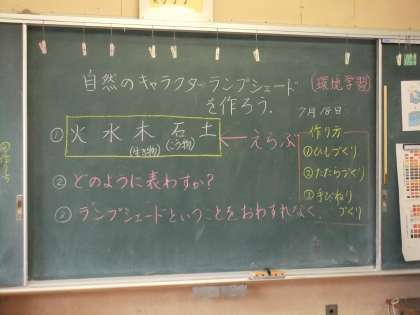 自然のキャラクターランプシェード
を作ろう.
(環境学習)
7月18日
① 火 水 木 石 土 ← えらぶ
(生き物) (こう物)
② どのように表わすか?
③ ランプシェードということをおわすれなく.
作り方
①ひもづくり
②たたらづくり
③手びねり
づくり